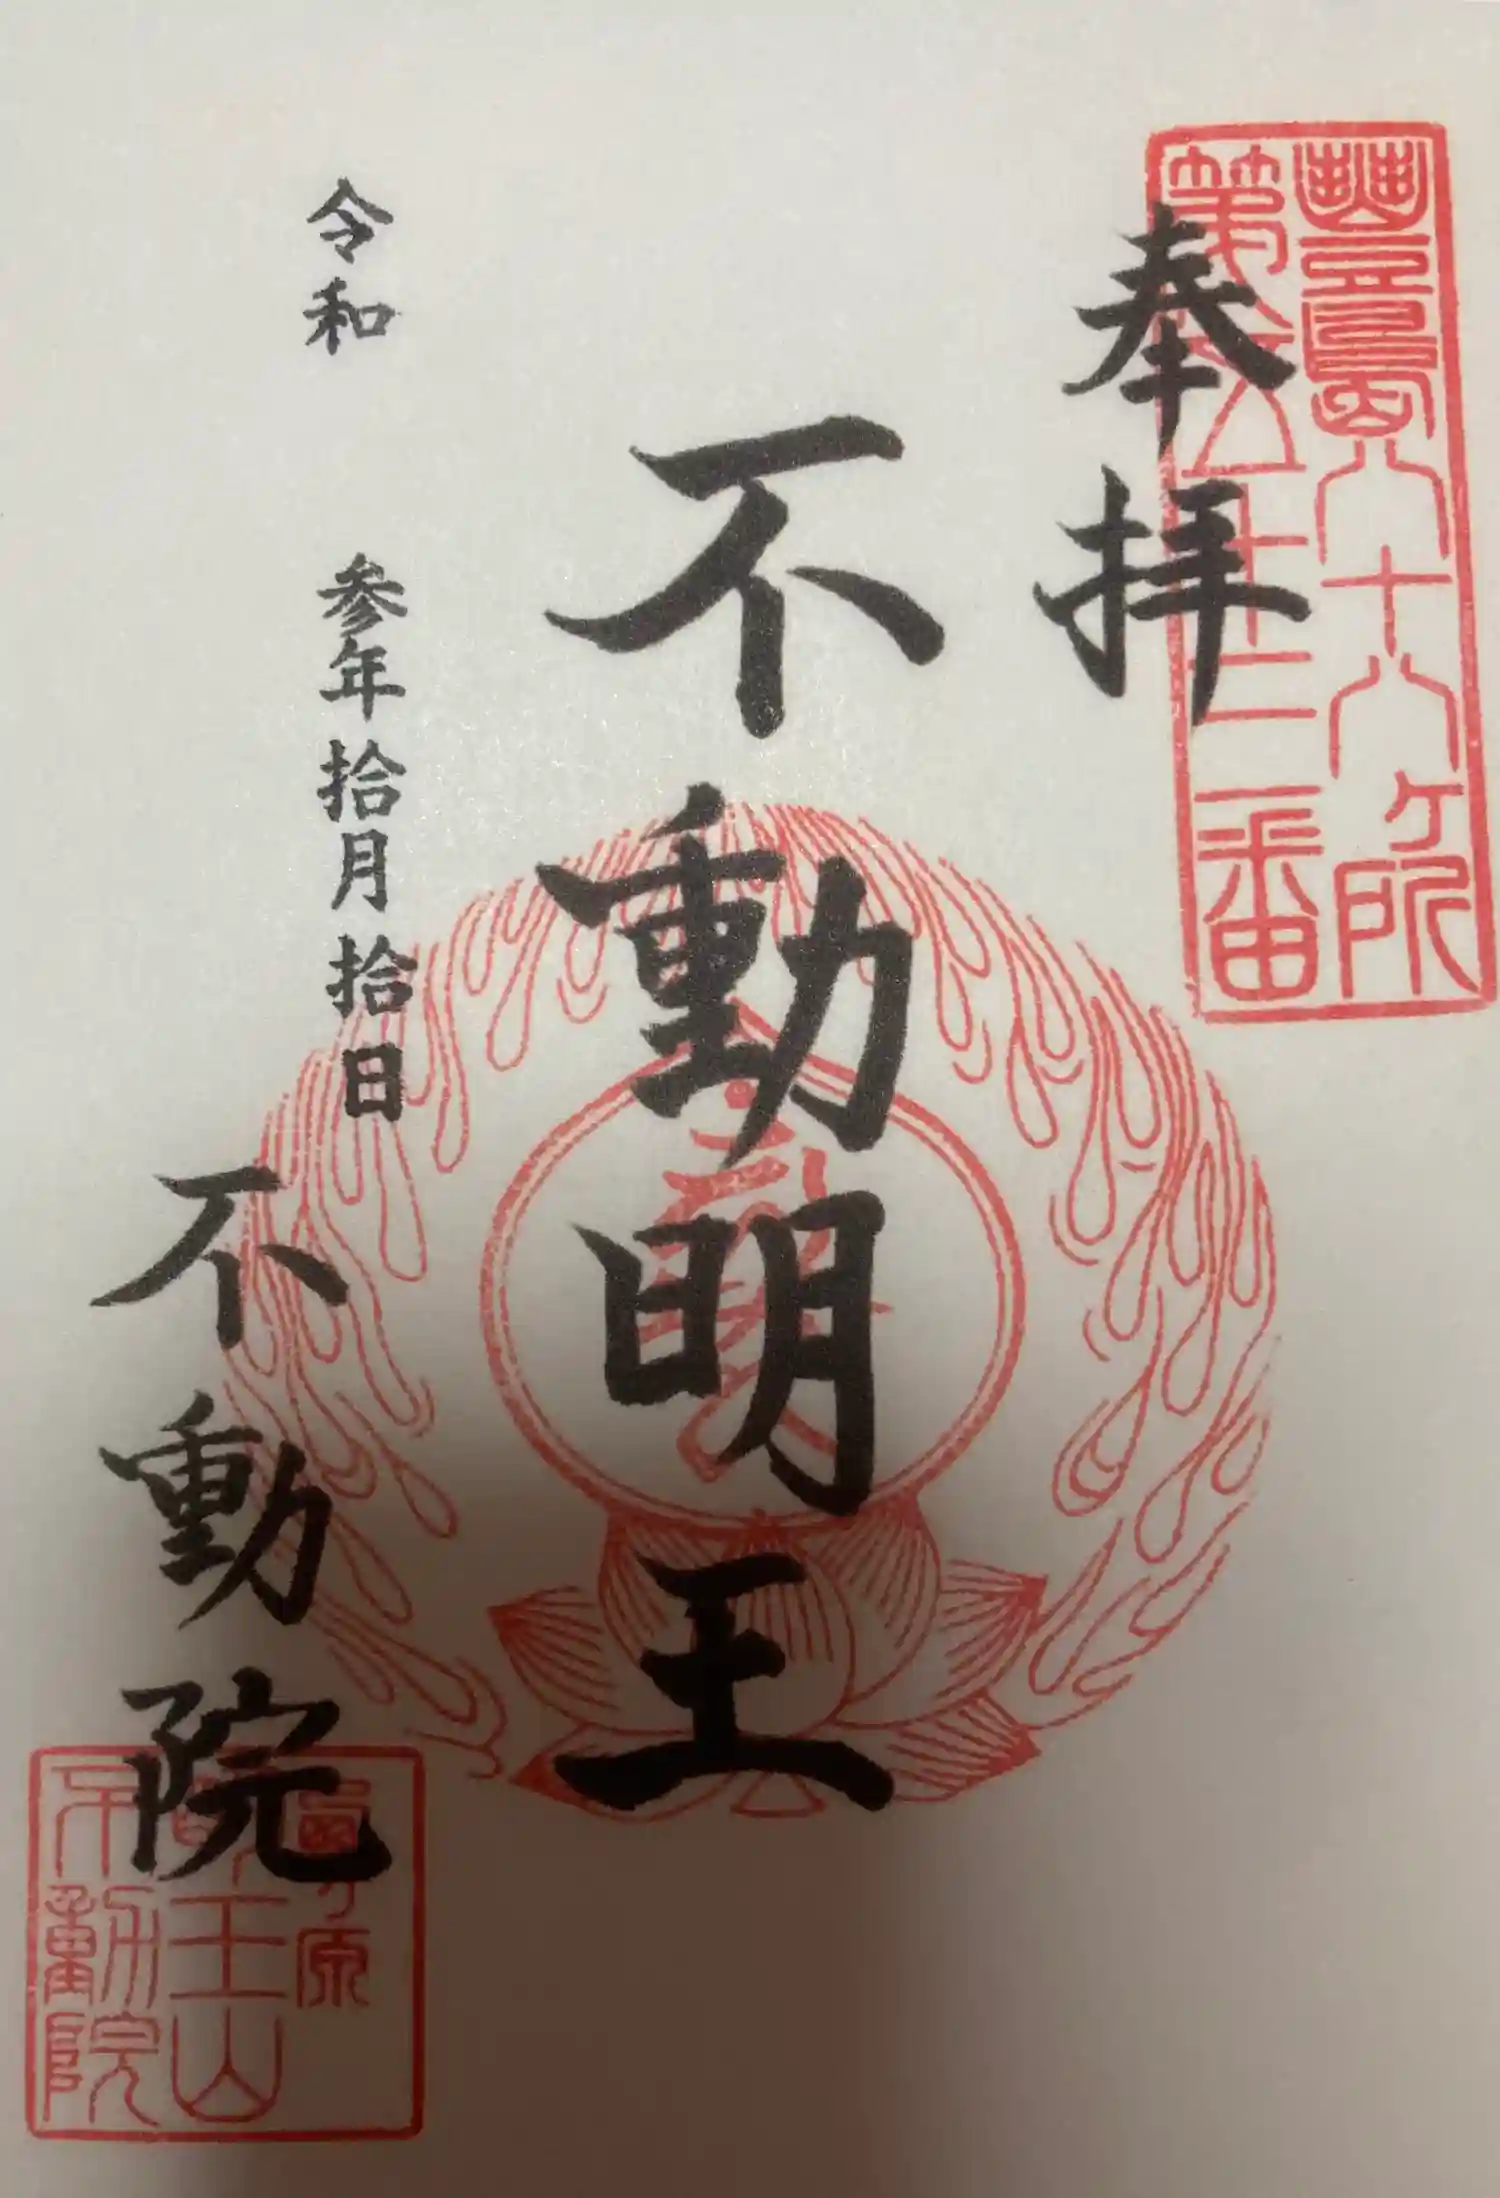 豊島八十八ヶ所
第五十二番
奉拝
不動明王
令和 参年拾月拾日
不動院
ヶ原
王山
不動院